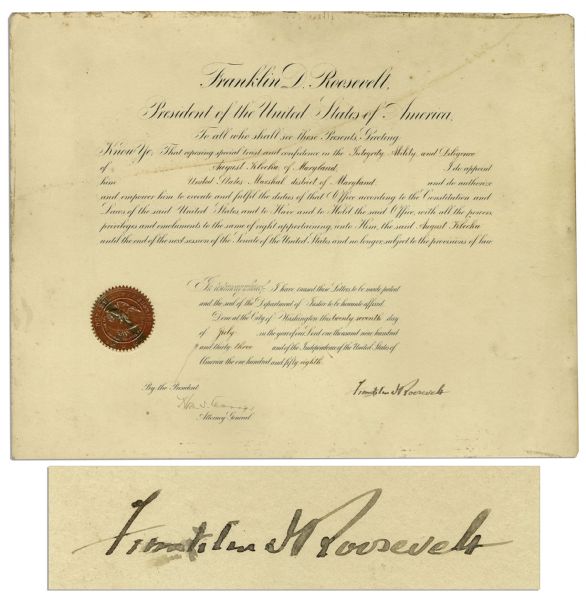 Franklin D. Roosevelt,
President of the United States of America,
To all who shall see these Presents, Greeting:
Know Ye, That reposing special trust and confidence in the Integrity, Ability, and Diligence
of August Klecka of Maryland I do appoint
him United States Marshal district of Maryland and do authorize
and empower him to execute and fulfil the duties of that Office according to the Constitution and
Laws of the said United States and to Have and to Hold the said Office, with all the powers,
privileges and emoluments to the same of right appertaining, unto Him, the said August Klecka
until the end of the next session of the Senate of the United States and no longer, subject to the provisions of law
In testimony whereof I have caused these Letters to be made patent
and the seal of the Department of Justice to be hereunto affixed.
Done at the City of Washington this twenty seventh day
of July in the year of our Lord one thousand nine hundred
and thirty three and of the Independence of the United States of
America the one hundred and fifty eighth.
By the President
Franklin D Roosevelt
Attorney General
Franklin D Roosevelt